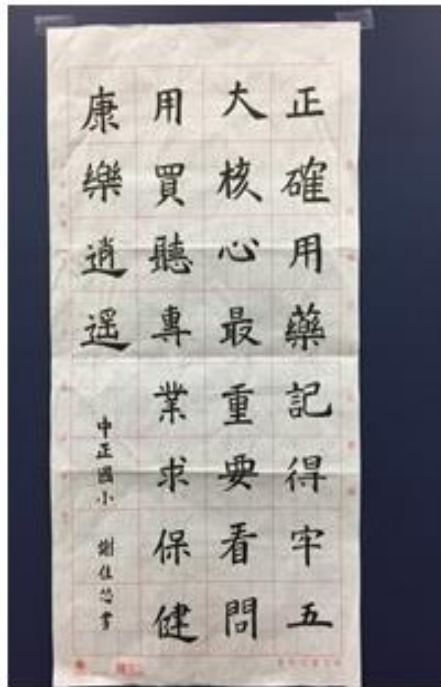 正確用藥記得牢五
大核心最重要看問
用買聽專業求保健
康樂逍遥
中正國小 謝佳芯書